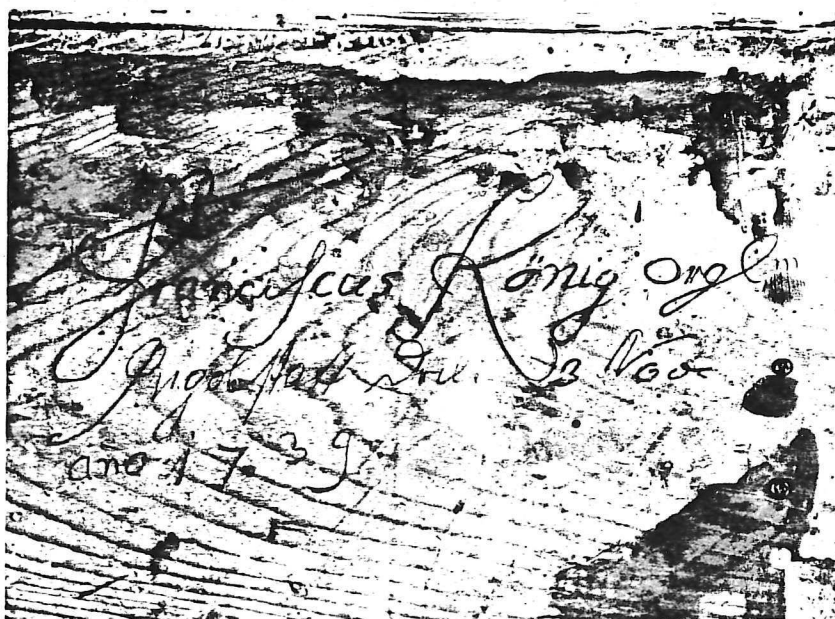 Franciscus König Orgl m
Ingolstatt Den 3 Nov
ano 1739